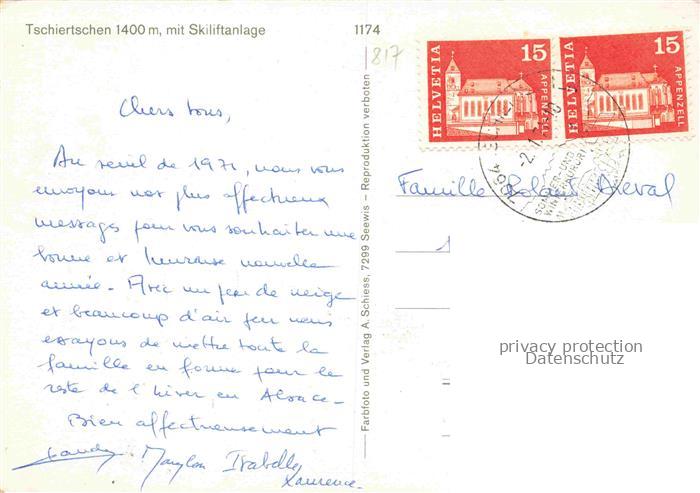 Tschiertschen 1400 m, mit Skiliftanlage
1174
817
HELVETIA 15 APPENZELL
HELVETIA 15 APPENZELL
Chers tous,
Au seuil de 1971, nous vous
envoyons nos plus affectueux
messages pour vous souhaiter une
bonne et heureuse nouvelle
année. Avec un peu de neige
et beaucoup d'air feu nous
essayons de mettre toute la
famille en forme pour le
reste de l'hiver en Alsace.
Bien affectueusement
Marylou Isabelle
Laurence.
Farbfoto und Verlag A. Schiess, 7299 Seewis – Reproduktion verboten
Famille Roland
privacy protection
Datenschutz